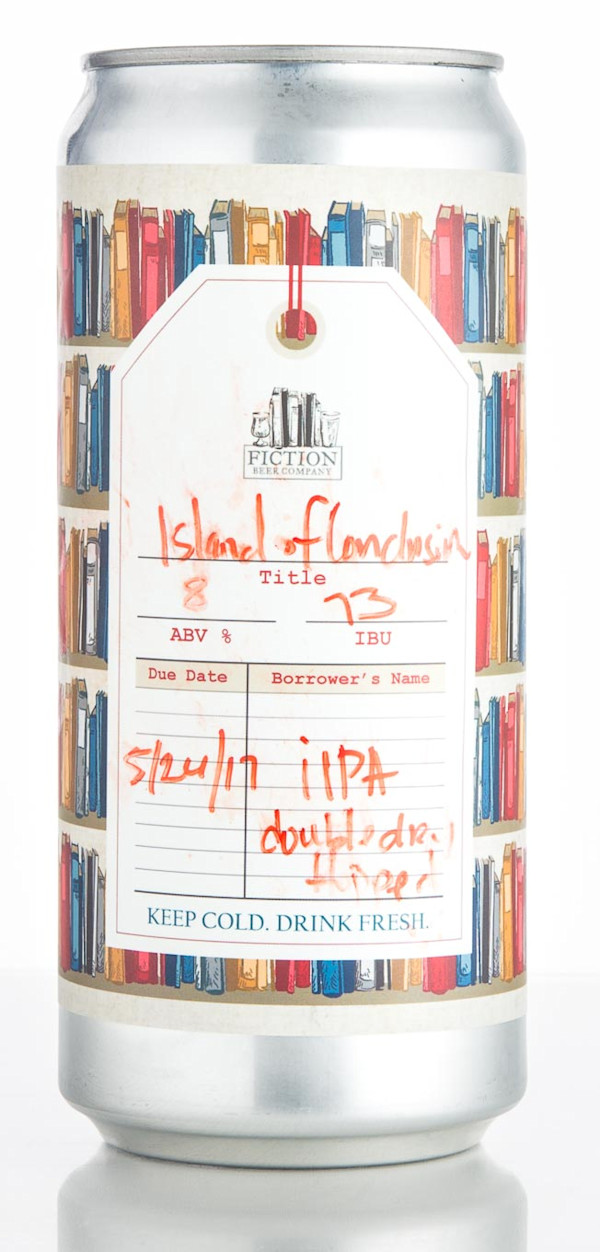 FICTION
BEER COMPANY
Island of Conclusion
Title
8 73
ABV % IBU
Due Date Borrower's Name
5/24/17 iIPA
double dry
KEEP COLD. DRINK FRESH.